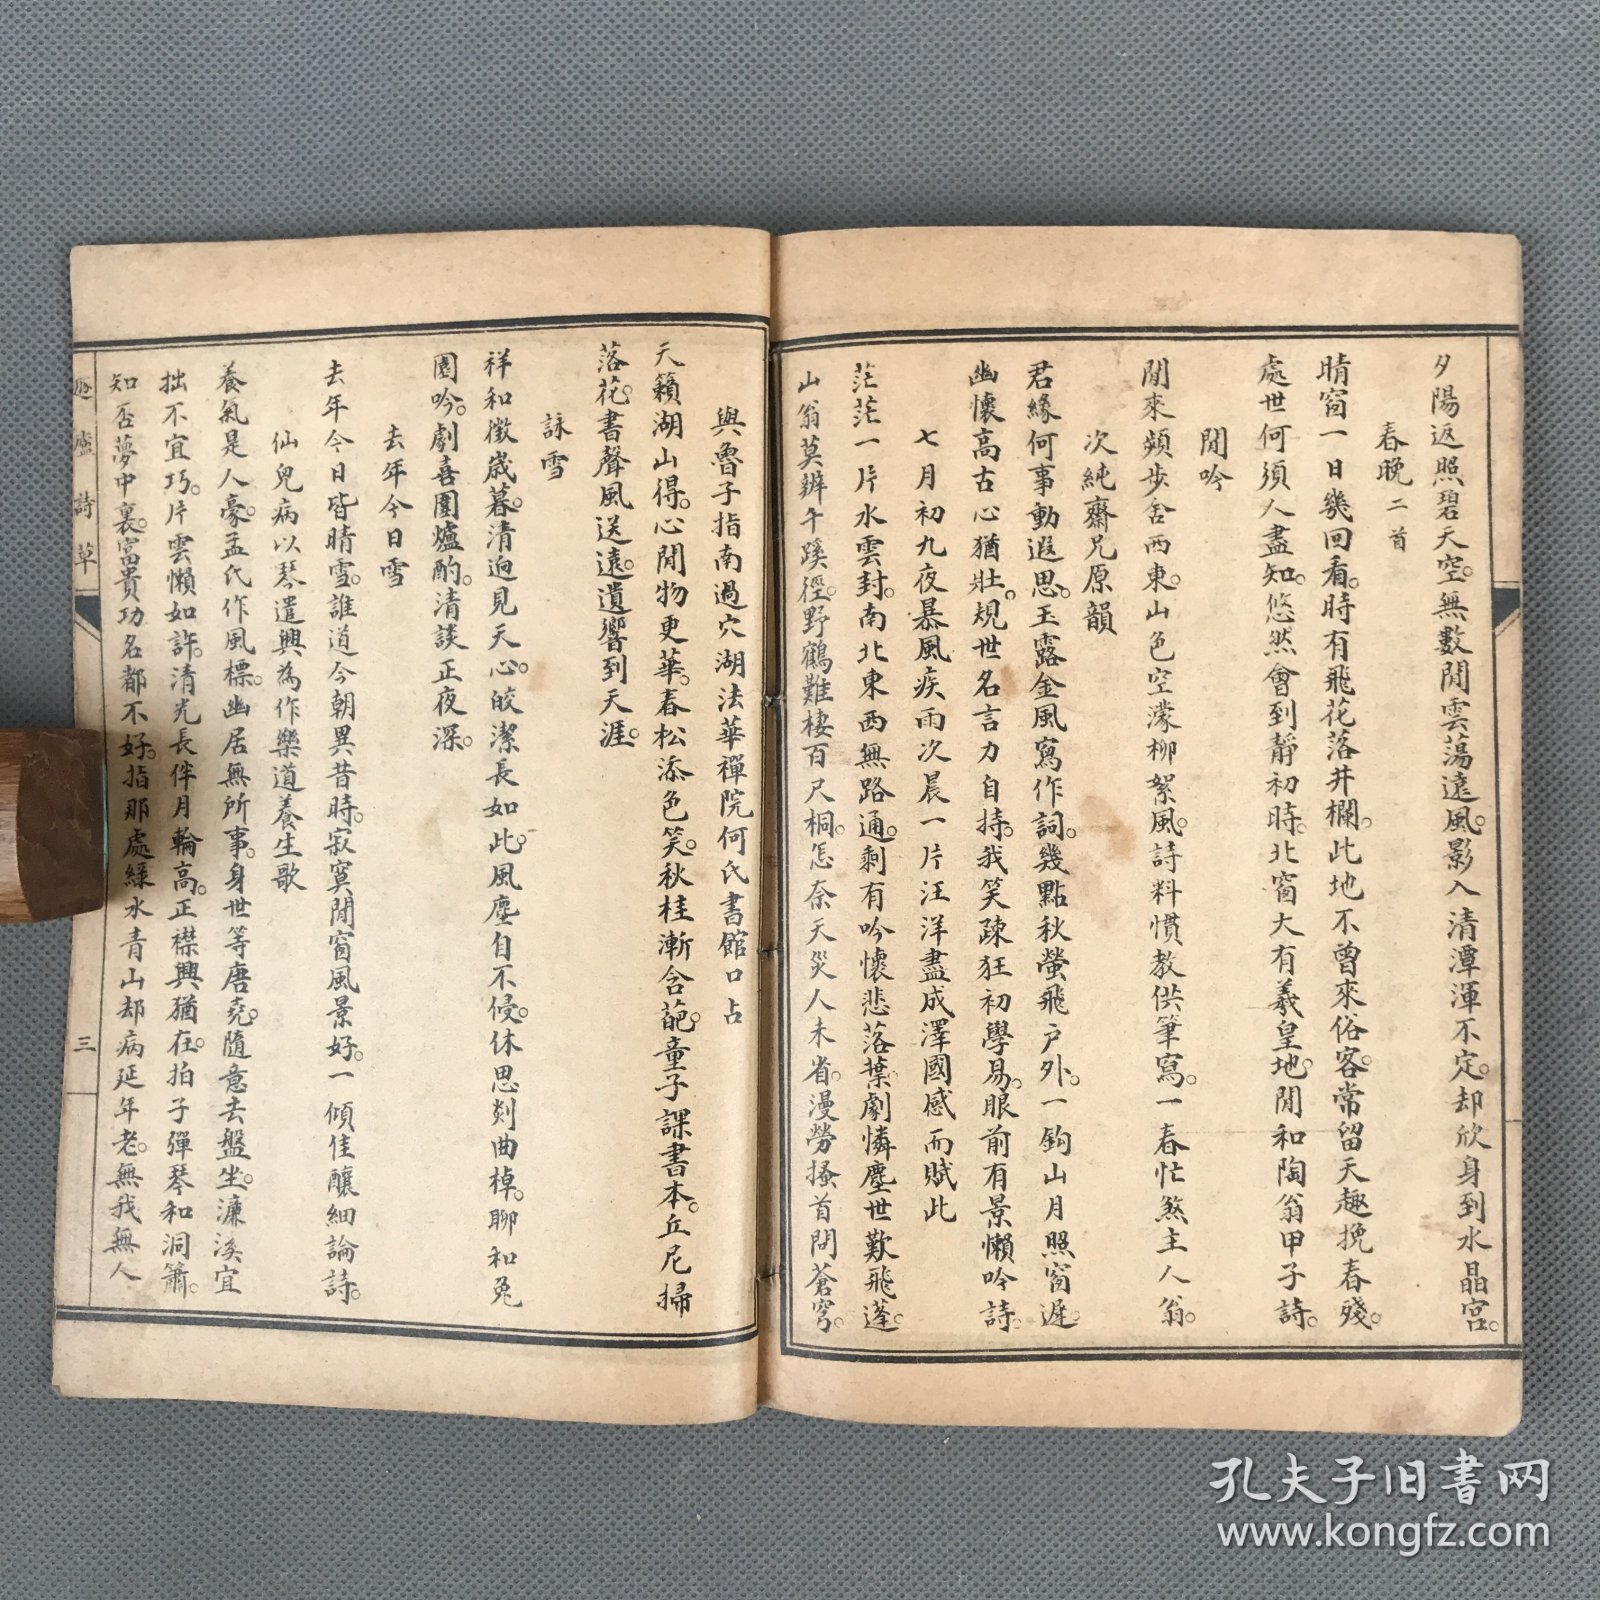 夕陽返照碧天空。無數閒雲蕩遠風。影入清潭渾不定。却欣身到水晶宮。
春晚二首
晴窗一日幾回看。時有飛花落井欄。此地不曾來俗客。常留天趣挽春殘。
處世何須人盡知。悠然會到靜初時。北窗大有羲皇地。閒和陶翁甲子詩。
閒吟
閒來頻步舍西東。山色空濛柳絮風。詩料慣教供筆寫。一春忙煞主人翁。
次純齋兄原韻
君緣何事動遐思。玉露金風寫作詞。幾點秋螢飛戶外。一鉤山月照窗遲。
幽懷高古心猶壯。規世名言力自持。我笑疎狂初學易。眼前有景懶吟詩。
七月初九夜暴風疾雨次晨一片汪洋盡成澤國感而賦此
茫茫一片水雲封。南北東西無路通。剩有吟懷悲落葉。劇憐塵世歎飛蓬。
山翁莫辨午蹊徑。野鶴難棲百尺桐。怎奈天災人未省。漫勞搔首問蒼穹。
與魯子指南過穴湖法華禪院何氏書館口占
天籟湖山得。心閒物更華。春松添色笑。秋桂漸含葩。童子課書本。丘尼掃
落花。書聲風送遠。遺響到天涯。
詠雪
祥和徵歲暮。清迥見天心。皎潔長如此。風塵自不侵。休思剡曲棹。聊和兔
園吟。劇喜圍爐酌。清談正夜深。
去年今日雪
去年今日皆晴雪。誰道今朝異昔時。寂寞閒窗風景好。一傾佳釀細論詩。
仙兒病以琴遣興為作樂道養生歌
養氣是人豪。孟氏作風標。幽居無所事。身世等唐堯。隨意去盤坐。濂溪宜
拙不宜巧。片雲懶如許。清光長伴月輪高。正襟興猶在。拍子彈琴和洞簫。
知否夢中裏。富貴功名都不好。指那處綠水青山却病延年老。無我無人
廬詩草
三
孔夫子旧书网
www.kongfz.com